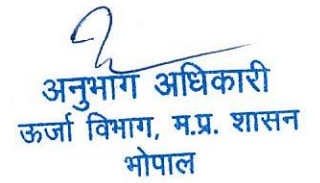 अनुभाग अधिकारी
ऊर्जा विभाग, म.प्र. शासन
भोपाल